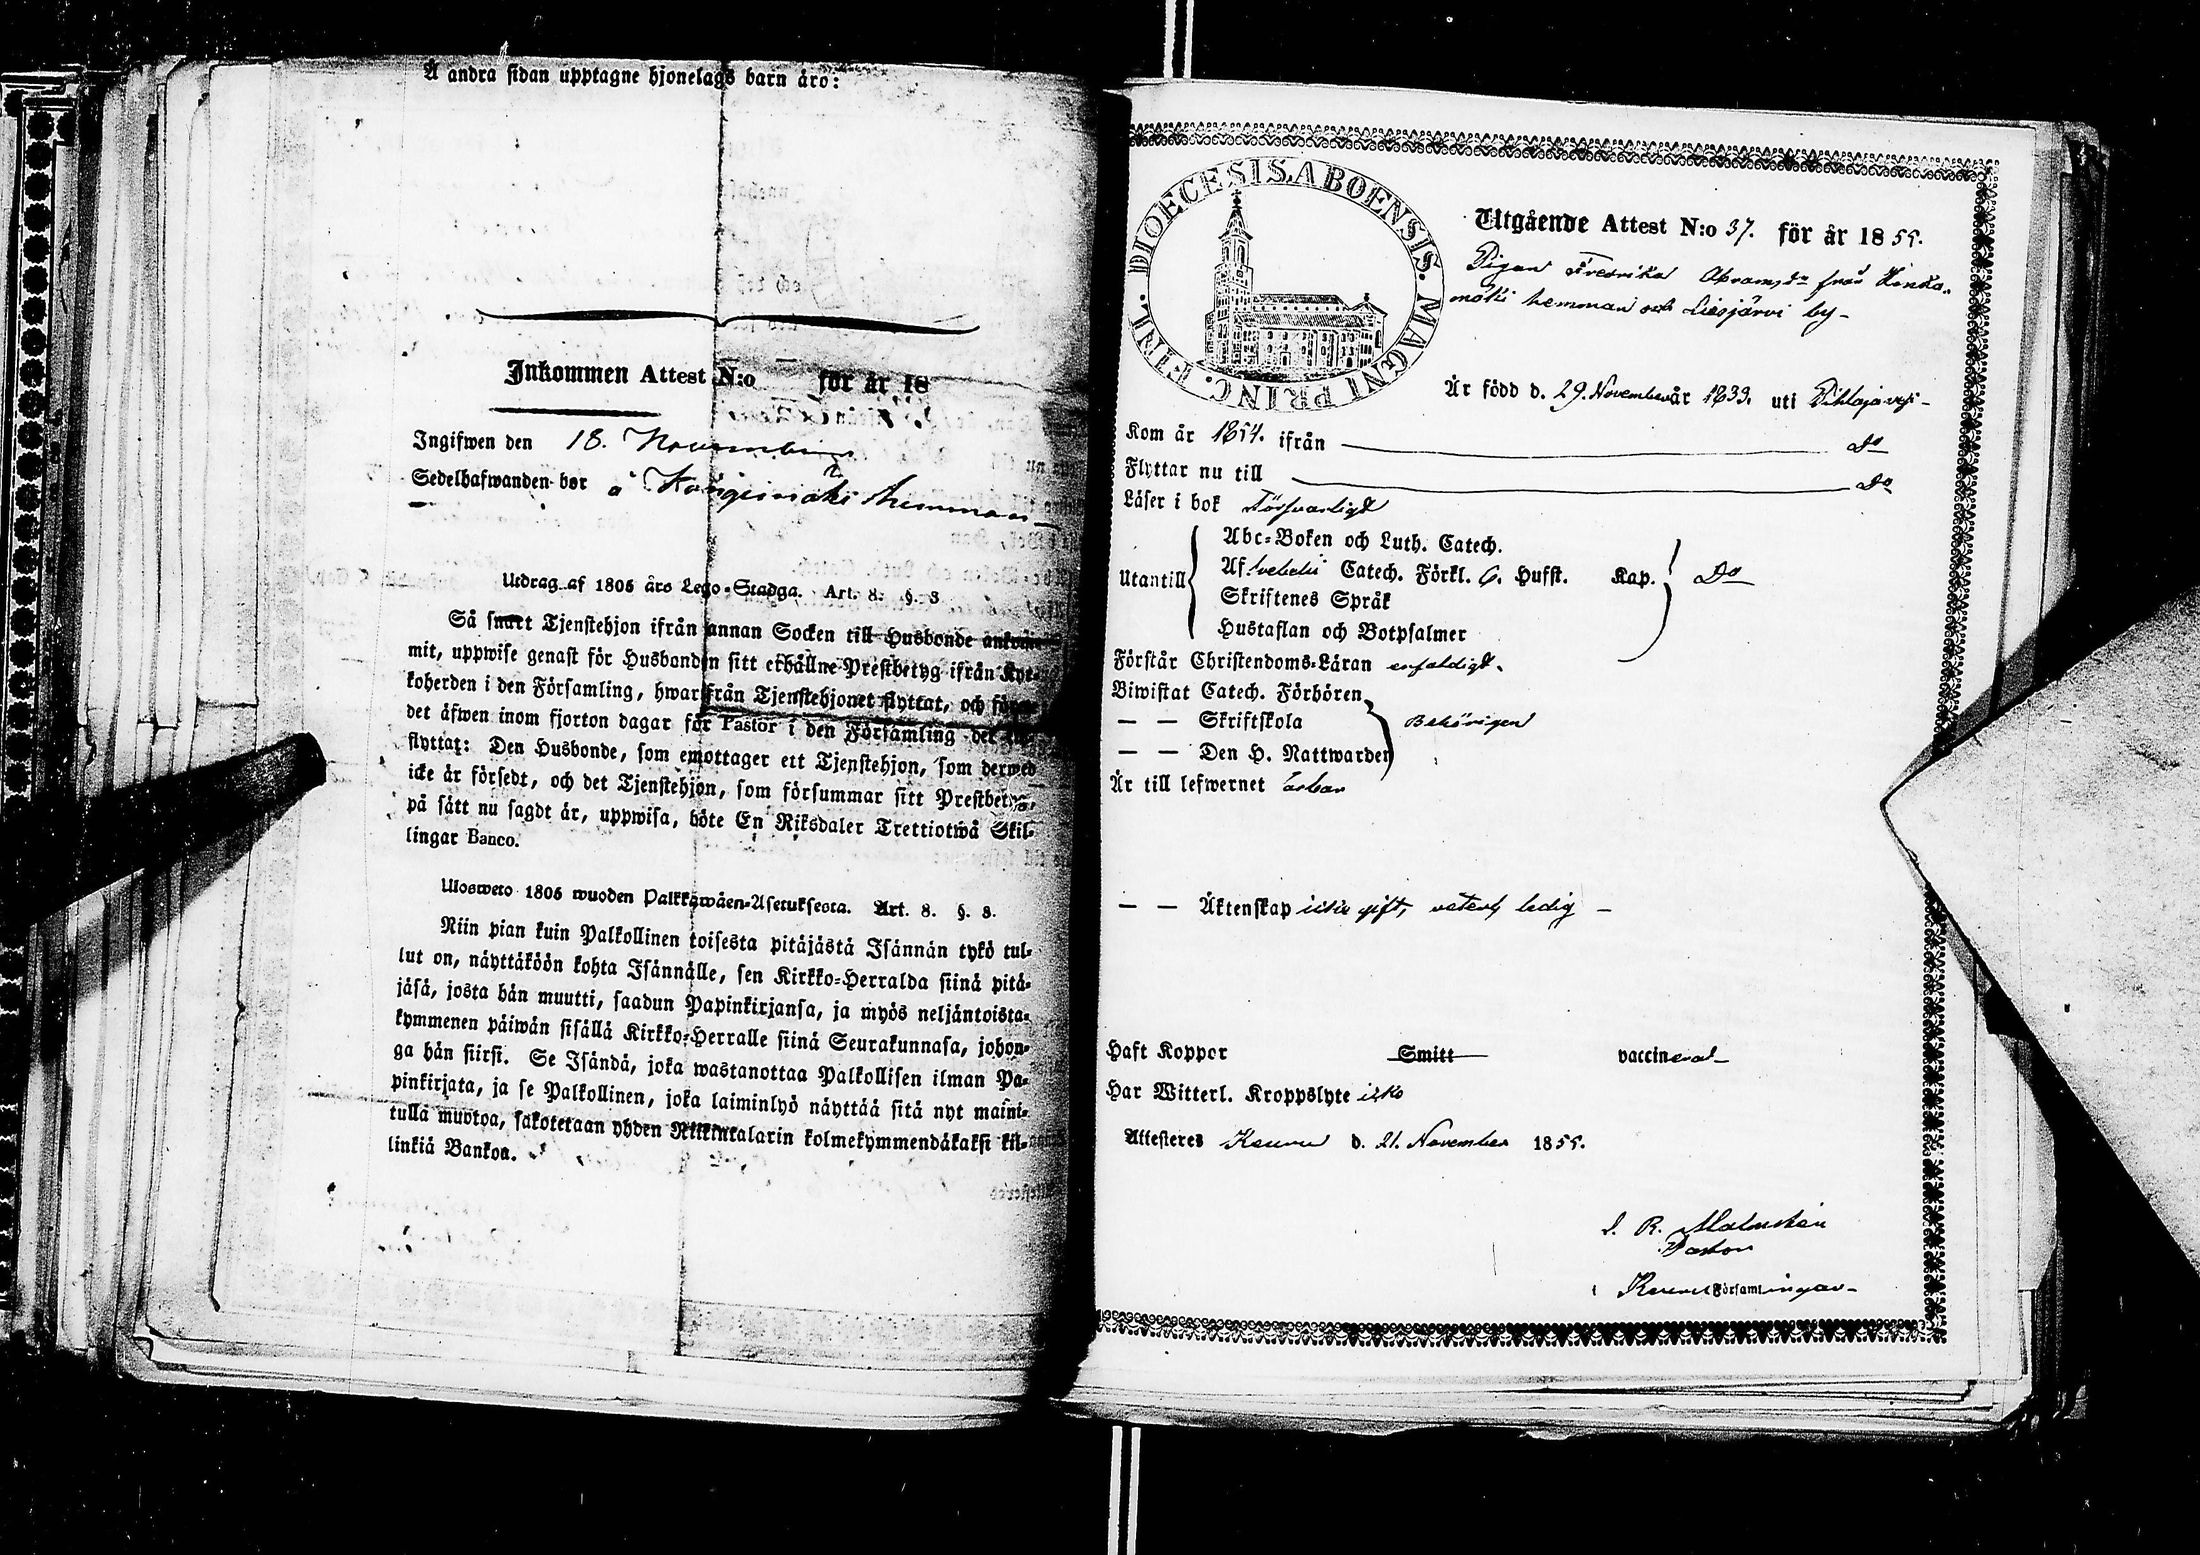 Å andra sidan upptagne hjonelags barn äro:
Inkommen Attest N:o för år 18
Ingifwen den 18. November
Sedelhafwanden bor å Kangasmäki hemman
Utdrag af 1805 års Lego-Stadga. Art. 8. §. 8
Så snart Tjenstehjon ifrån annan Socken till Husbonde ankom-
mit, uppwise genast för Husbonden sitt erhållne Prestbetyg ifrån Kyr-
koherden i den Församling, hwarifrån Tjenstehjonet flyttat, och
det äfwen inom fjorton dagar för Pastor i den Församling det
flyttat: Den Husbonde, som emottager ett Tjenstehjon, som dermed
icke är försedt, och det Tjenstehjon, som försummar sitt Prestbetyg,
på sätt nu sagdt är, uppwisa, böte En Riksdaler Trettiotwå Skil-
lingar Banco.
Ulosweto 1805 wuoden Palkkawäen-Asetuksesta. Art. 8. §. 8.
Niin pian kuin Palkollinen toisesta pitäjästä Isännän tykö tul-
lut on, näyttäköön kohta Isännälle, sen Kirkko-Herralda siinä pitä-
jäsä, josta hän muutti, saadun Papinkirjansa, ja myös neljäntoista-
kymmenen päiwän sisällä Kirkko-Herralle siinä Seurakunnasa, johon-
ga hän siirsi. Se Isändä, joka wastanottaa Palkollisen ilman Pa-
pinkirjata, ja se Palkollinen, joka laiminlyö näyttää sitä nyt maini-
tulla muotoa, sakotetaan yhden Riikintalarin kolmekymmendäkaksi kil-
linkiä Bankoa.
DIOECESIS. ABOENSIS. MAGNI PRINC. FINL.
Utgående Attest N:o 37. för år 1855.
Pigan Fredrika Abramsdr från
mäki hemman och Liesjärvi by-
Är född d. 29. November år 1833. uti Pihlajavesi-
Kom år 1854. ifrån Do
Flyttar nu till Do
Läser i bok Försvarligt
Abc-Boken och Luth. Catech.
Utantill Af Svebelii Catech. Förkl. 6. Hufst. Kap. Do
Skriftenes Språk
Hustaflan och Botpsalmer
Förstår Christendoms-Läran enfaldigt.
Biwistat Catech. Förhören
— — Skriftskola Behörigen
— — Den H. Nattwarden
Är till lefwernet ärbar
— — Äktenskap icke gift, ledig —
Haft Koppor Smitt vaccinerad
Har Witterl. Kroppslyte icke
Attesteres Keuru d. 21. November 1855.
J. R. Malmstén
Pastor
i Keuru Församlingar-